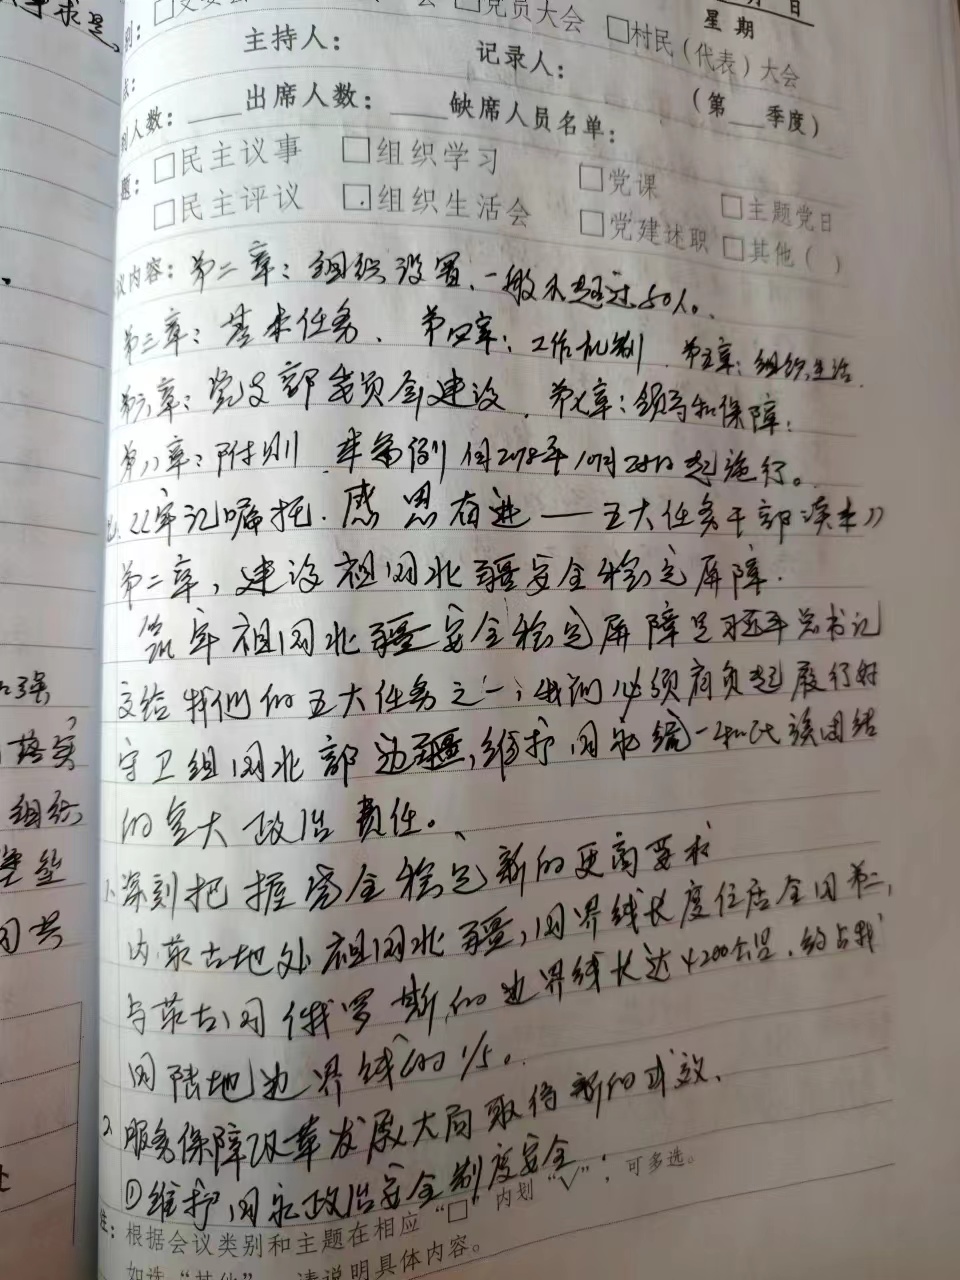 星期
党员大会 □村民（代表）大会
主持人： 记录人：
（第___季度）
人数：____出席人数：____缺席人员名单：
□民主议事 □组织学习 □党课 □主题党日
题：
□民主评议 □组织生活会 □党建述职 □其他（ ）
议内容：第二章：组织设置、一般不超过50人。
第三章：基本任务、第四章：工作机制 第五章：组织生活
第六章：党支部委员会建设、第七章：领导和保障：
第八章：附则 本条例 起施行。
记嘱托.感恩奋进——五大任务干部读本》
第二章，建设祖国北疆安全稳定屏障.
祖国北疆安全稳定屏障是习近平总书记
交给我们的五大任务之一；我们必须肩负起履行好
守卫祖国北部边疆，维护国家统一和民族团结
的重大政治责任。
1、深刻把握安全稳定新的更高要求
内蒙古地处祖国北疆，国界线长度位居全国第二，
与蒙古国俄罗斯的边界线长达4200公里.约占我
国陆地边界线的1/5。
2 服务保障改革发展大局取得新的成效、
①维护国家政治安全制度安全：
注：根据会议类别和主题在相应“□”内划“√”；可多选。
如选“其他”，请说明具体内容。
加强
落实
组织
堡垒